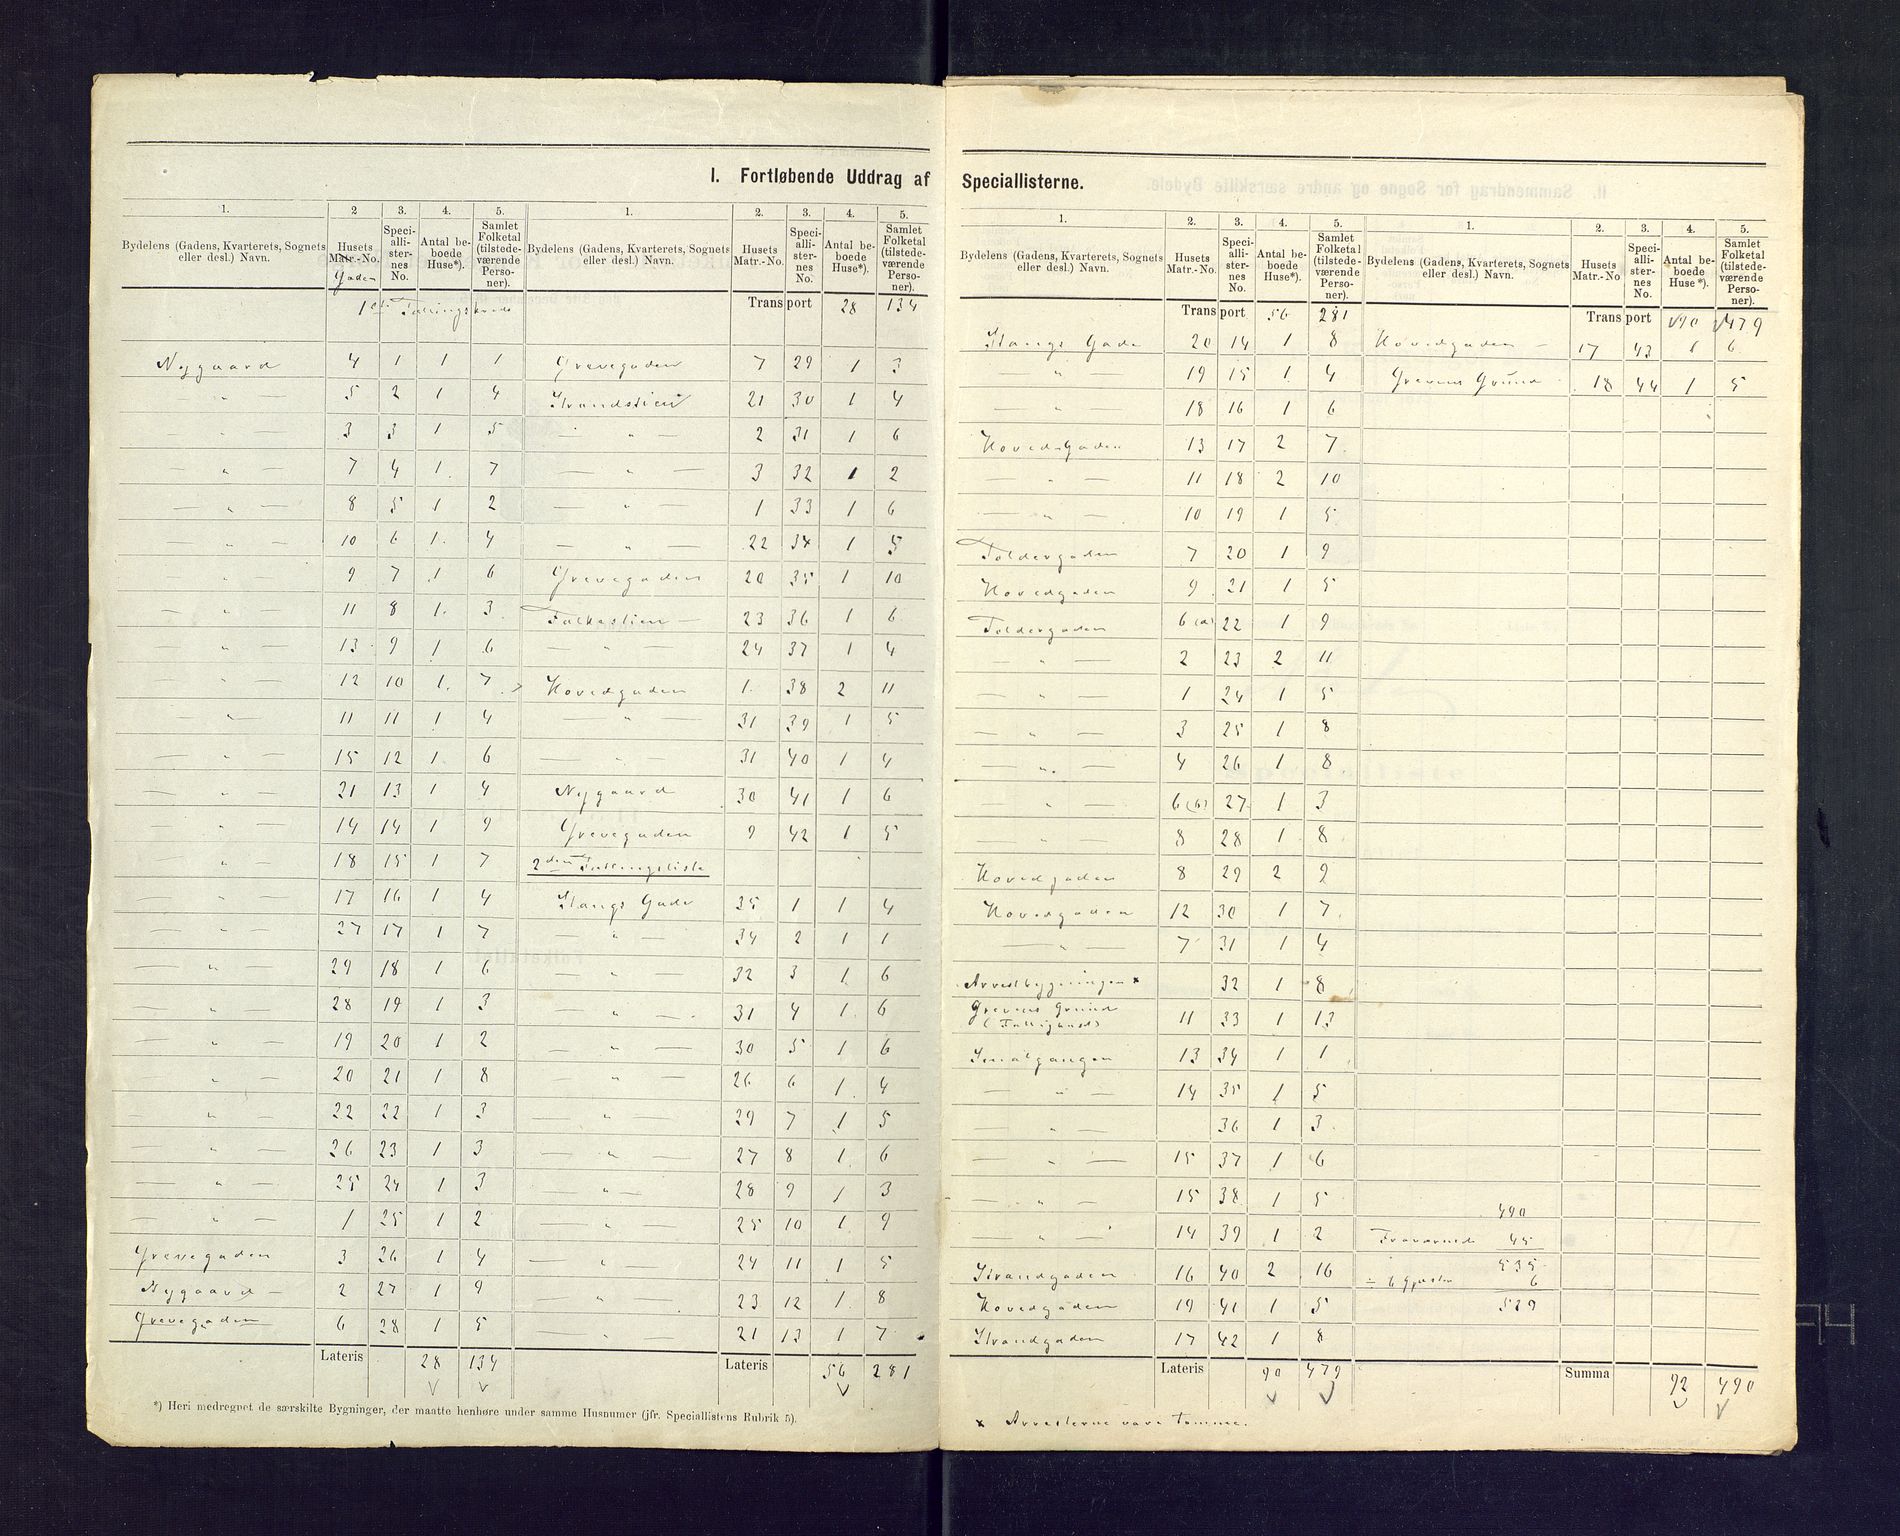 I. Fortløbende Uddrag af Speciallisterne.
1. 2 3. 4. 5. 1. 2. 3. 4. 5.
Bydelens (Gadens, Kvarterets, Sognets eller desl.) Navn. Husets Matr.-No. Gaden Speciallisternes No. Antal beboede Huse*). Samlet Folketal (tilstedeværende Personer). Bydelens (Gadens, Kvarterets, Sognets eller desl.) Navn. Husets Matr.-No. Speciallisternes No. Antal beboede Huse*). Samlet Folketal (tilstedeværende Personer).
1ste Tællingskreds Transport 28 134
Nygaard 4 1 1 1 Grevegaden 7 29 1 3
— „ — 5 2 1 4 Strandstien 21 30 1 4
— „ — 3 3 1 5 — „ — 2 31 1 6
— „ — 7 4 1. 7 — „ — 3 32 1 2
— „ — 8 5 1 2 — „ — 1 33 1 6
— „ — 10 6 1. 4 — „ — 22 34 1 5
— „ — 9 7 1 6 Grevegaden 20 35 1 10
— „ — 11 8 1. 3 Falkestien — 23 36 1 6
— „ — 13 9 1 6 — „ — 24 37 1 4
— „ — 12 10 1. 7 Hovedgaden 1. 38 2 11
— „ — 11 11 1 4 — „ — 31 39 1 5
— „ — 15 12 1. 6 — „ — 31 40 1 4
— „ — 21 13 1 4 Nygaard 30 41 1 6
— „ — 14 14 1 9 Grevegaden 9 42 1 5
— „ — 18 15 1 7 2den Tællingsliste
— „ — 17 16 1 4 Stangs Gade 35 1 1 4
— „ — 27 17 1 7 — „ — 34 2 1 1
— „ — 29 18 1 6 — „ — 32 3 1 6
— „ — 28 19 1 3 — „ — 31 4 1. 6
— „ — 19 20 1 2 — „ — 30 5 1 6
— „ — 20 21 1 8 — „ — 26 6 1 4
— „ — 22 22 1 3 — „ — 29 7 1 5
— „ — 26 23 1 3 — „ — 27 8 1. 6
— „ — 25 24 1 3 — „ — 28 9 1 3
— „ — 1 25 1 2 — „ — 25 10 1 9
Grevegaden 3 26 1 4 — „ — 24 11 1 5
Nygaard — 2 27 1 9 — „ — 23 12 1. 8
Grevegaden 6 28 1 5 — „ — 21 13 1 7
Lateris 28 134 Lateris 56 281
*) Heri medregnet de særskilte Bygninger, der maatte henhøre under samme Husnumer (jfr. Speciallistens Rubrik 5).
1. 2. 3. 4. 5. 1. 2. 3. 4. 5.
Bydelens (Gadens, Kvarterets, Sognets eller desl.) Navn. Husets Matr.-No. Speciallisternes No. Antal beboede Huse*). Samlet Folketal (tilstedeværende Personer). Bydelens (Gadens, Kvarterets, Sognets eller desl.) Navn. Husets Matr.-No Speciallisternes No. Antal beboede Huse*). Samlet Folketal (tilstedeværende Personer).
Transport 56 281 Transport 90 479
Stangs Gade 20 14 1 8 Hovedgaden — 17 43 1 6
— „ — 19 15 1. 4 Grevens Grund 18 44 1 5
— „ — 18 16 1 6
Hovedsgaden 13 17 2 7
— „ — 11 18 2 10
— „ — 10 19 1 5
Toldergaden 7 20 1 9
Hovedgaden 9 21 1 5
Toldergaden 6 (a) 22 1 9
— „ — 2 23 2 11
— „ — 1 24 1 5
— „ — 3 25 1 8
— „ — 4 26 1 8
— „ — 6 (b) 27 1 3
— „ — 8 28 1 8
Hovedgaden 8 29 2 9
Hovedgaden 12 30 1 7
— „ — 7 31 1 4
Arrestbygningen x 32 1 8
Grevens Grund (Fattighuset) 11 33 1 13
Smalgangen 13 34 1 1
— „ — 14 35 1 5
— „ — 36 1 3
— „ — 15 37 1 6
— „ — 15 38 1 5 490
— „ — 14 39 1 2 Fraværende 45
Strandgaden 16 40 2 16 535
÷ 6 Gjæster 6
Hovedgaden 19 41 1 5 529
Strandgaden 17 42 1 8
Lateris 90 479 Summa 92 490
x Arresterne vare tomme.